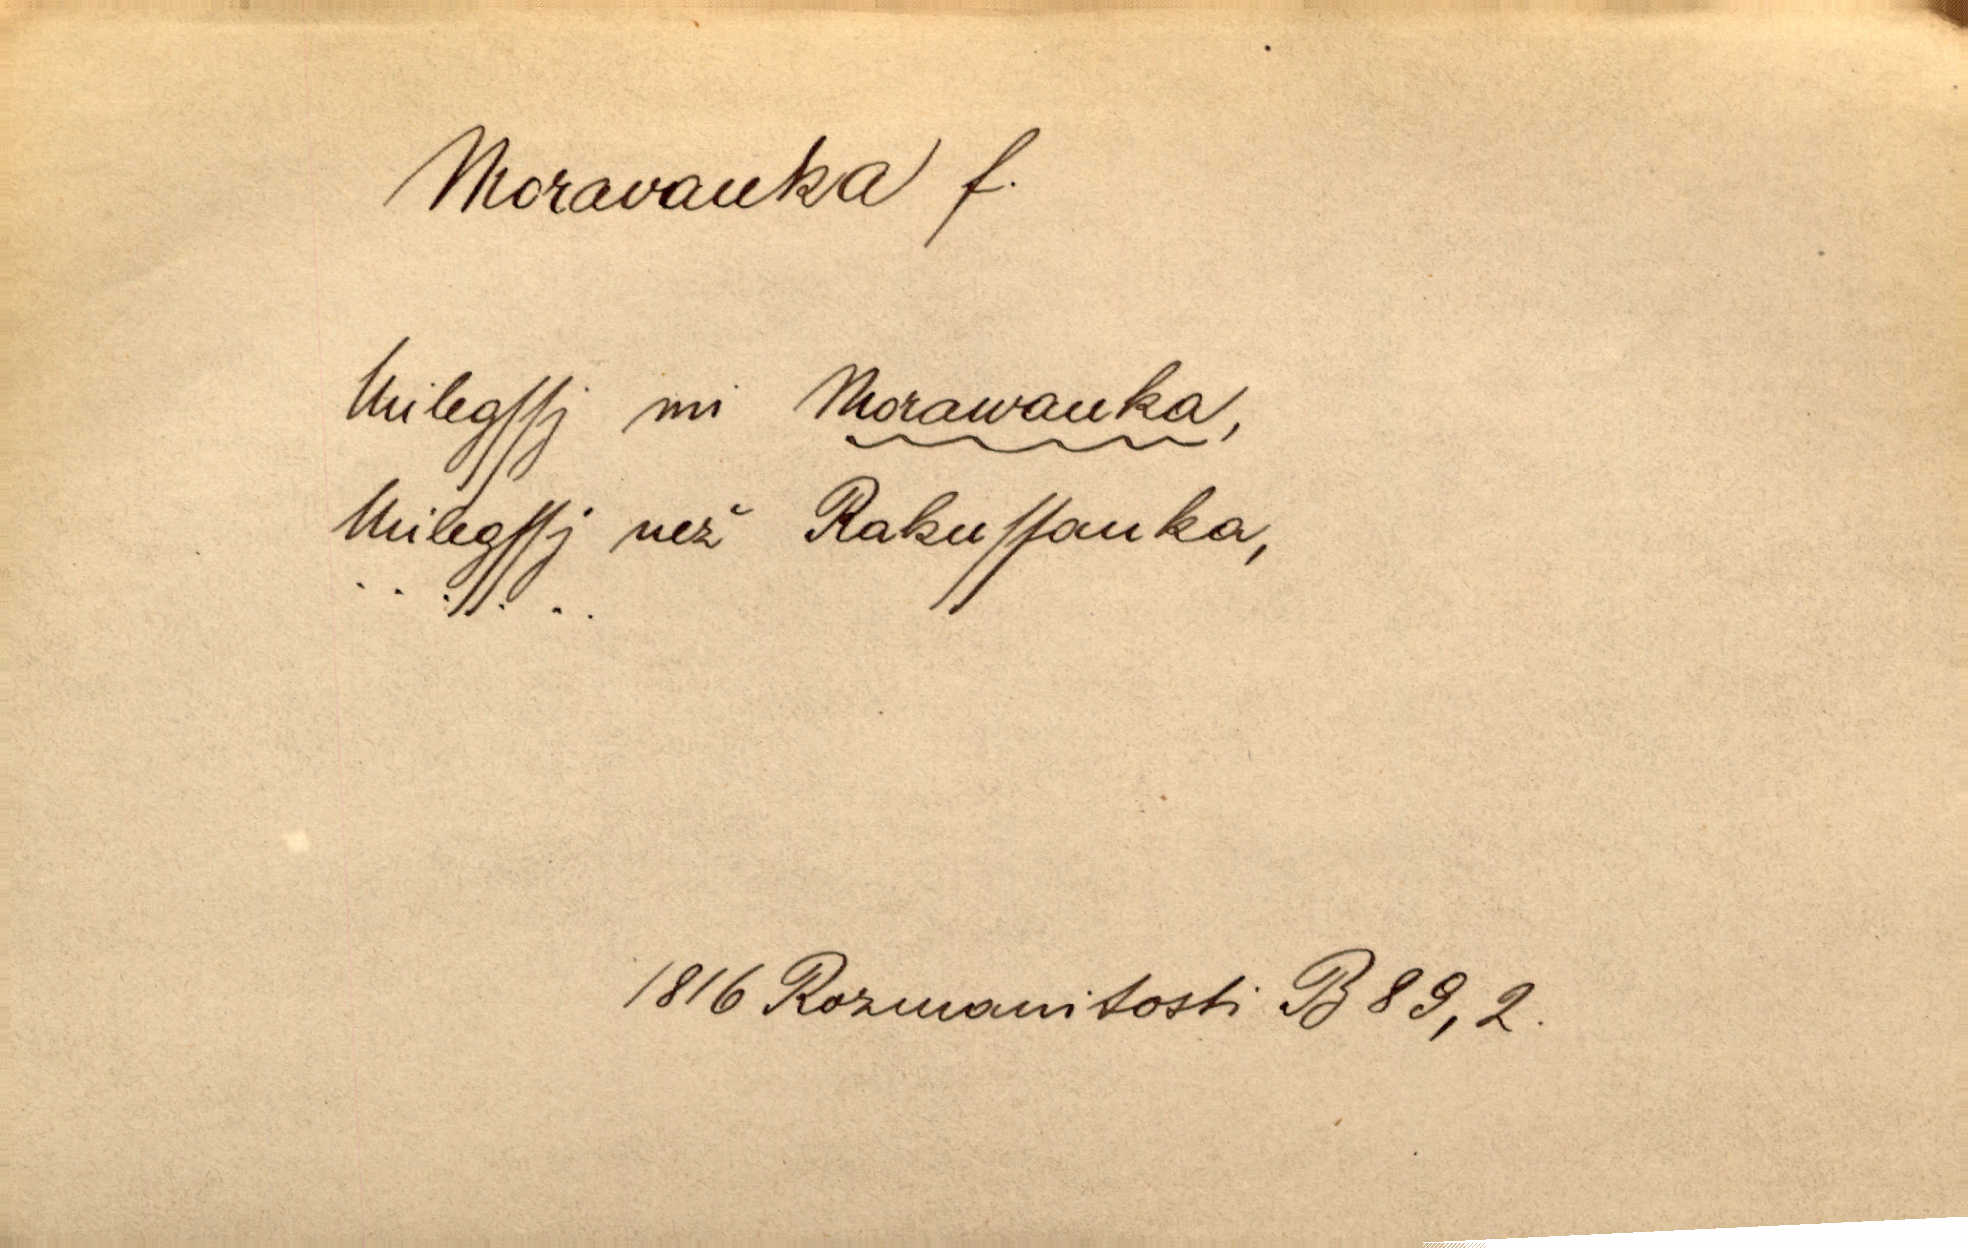 Moravanka f.
Milegſſj mi Morawanka,
Milegſſj než Rakuſſanka,
. . . . . .
1816 Rozmanitosti B 89, 2.